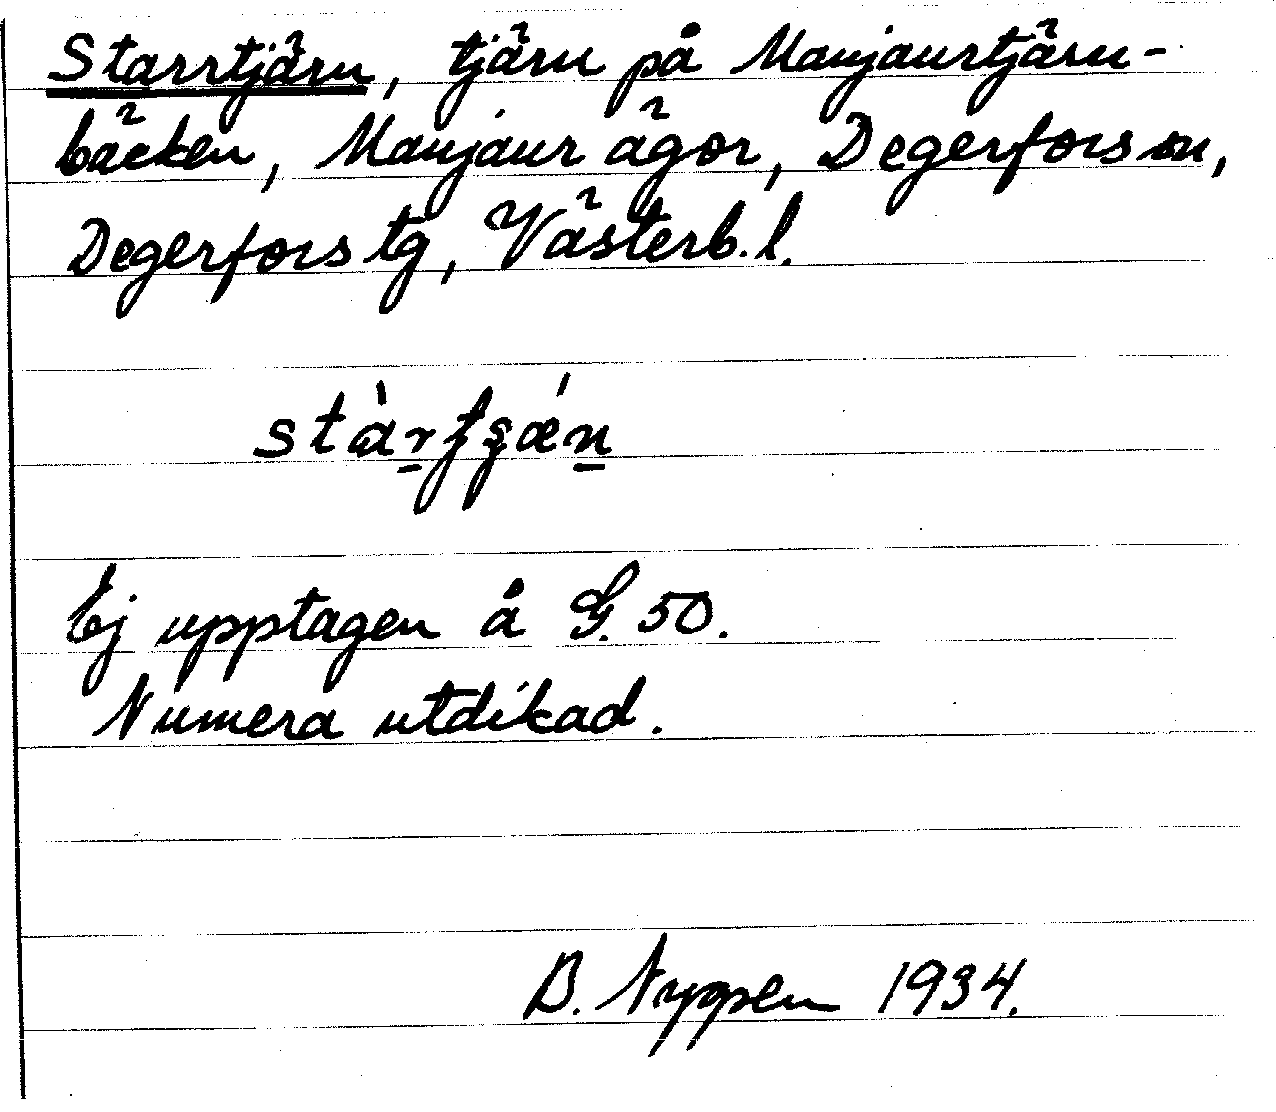 Starrtjärn, tjärn på Manjaurtjärn-
bäcken, Manjaur ägor, Degerfors sn,
Degerfors tg, Västerb. l.
Ej upptagen å G. 50.
Numera utdikad.
B. 1934.